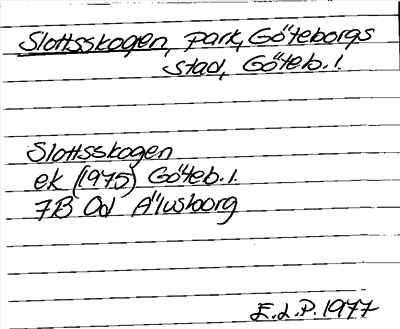 Slottsskogen, park, Göteborgs
stad, Göteb. l.
Slottsskogen
ek (1975) Göteb. l.
7B Od Älvsborg
E.L.P. 1977